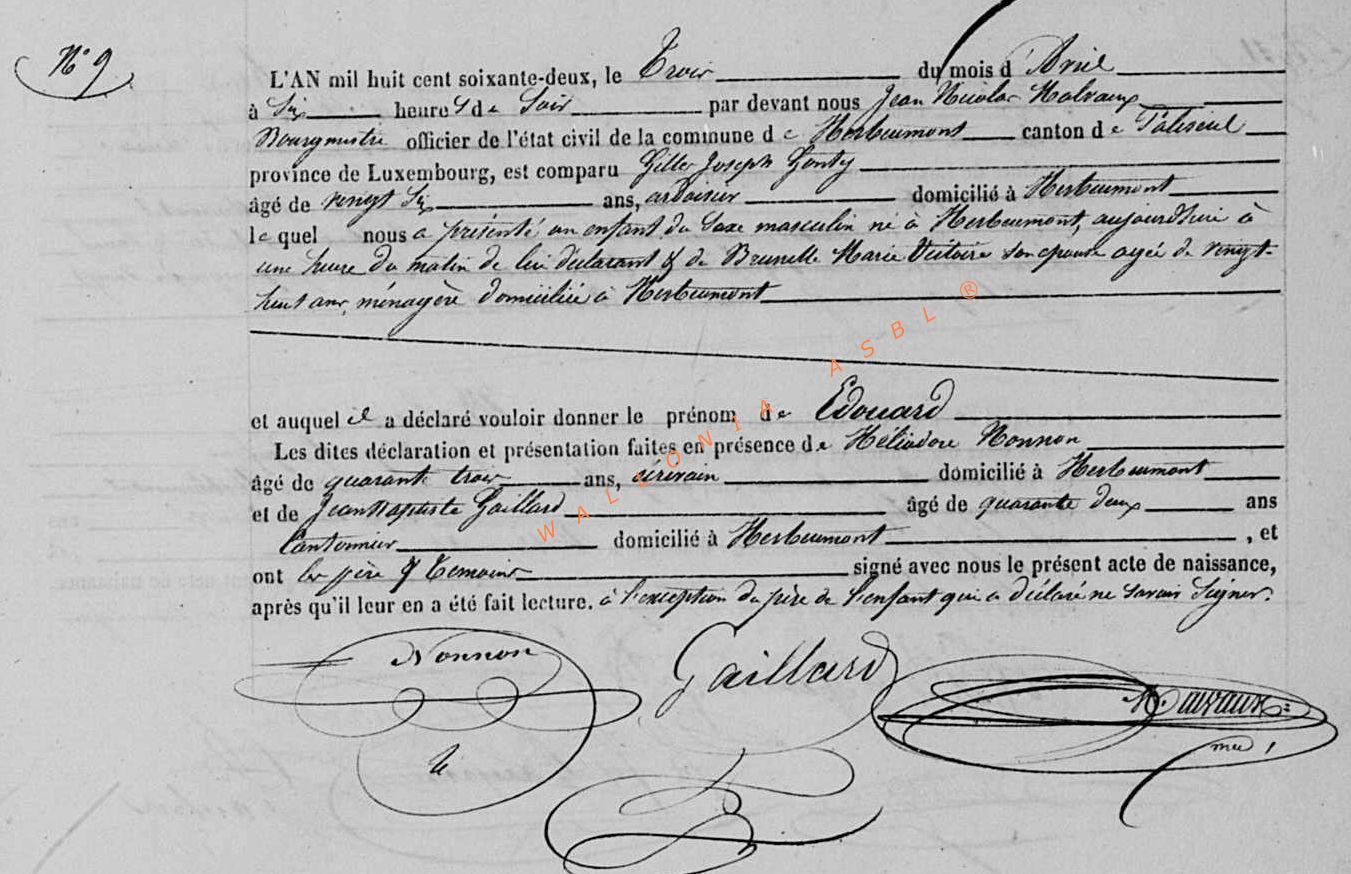 N° 9
L'AN mil huit cent soixante-deux, le Trois du mois d'Avril
à Six heures de Soir par devant nous Jean Nicolas Malvaux
Bourgmestre officier de l'état civil de la commune de Herbeumont canton de Paliseul
province de Luxembourg, est comparu Gilles Joseph Gonty
âgé de vingt Six ans, ardoisier domicilié à Herbeumont
le quel nous a présenté un enfant du Sexe masculin né à Herbeumont, aujourdhui à
une heure du matin de lui déclarant & de Brunelle Marie Victoire son épouse agée de vingt-
huit ans, ménagère domiciliée à Herbeumont
et auquel il a déclaré vouloir donner le prénom de Edouard
Les dites déclaration et présentation faites en présence de Héliodore Nonnon
âgé de quarante trois ans, écrivain domicilié à Herbeumont
et de Jean Baptiste Gaillard âgé de quarante deux ans
Cantonnier domicilié à Herbeumont, et
ont les père & témoins signé avec nous le présent acte de naissance,
après qu'il leur en a été fait lecture. à l'exception du père de l'enfant qui a déclaré ne savoir Signer.
Nonnon Gaillard
WALLONIA ASBL ®